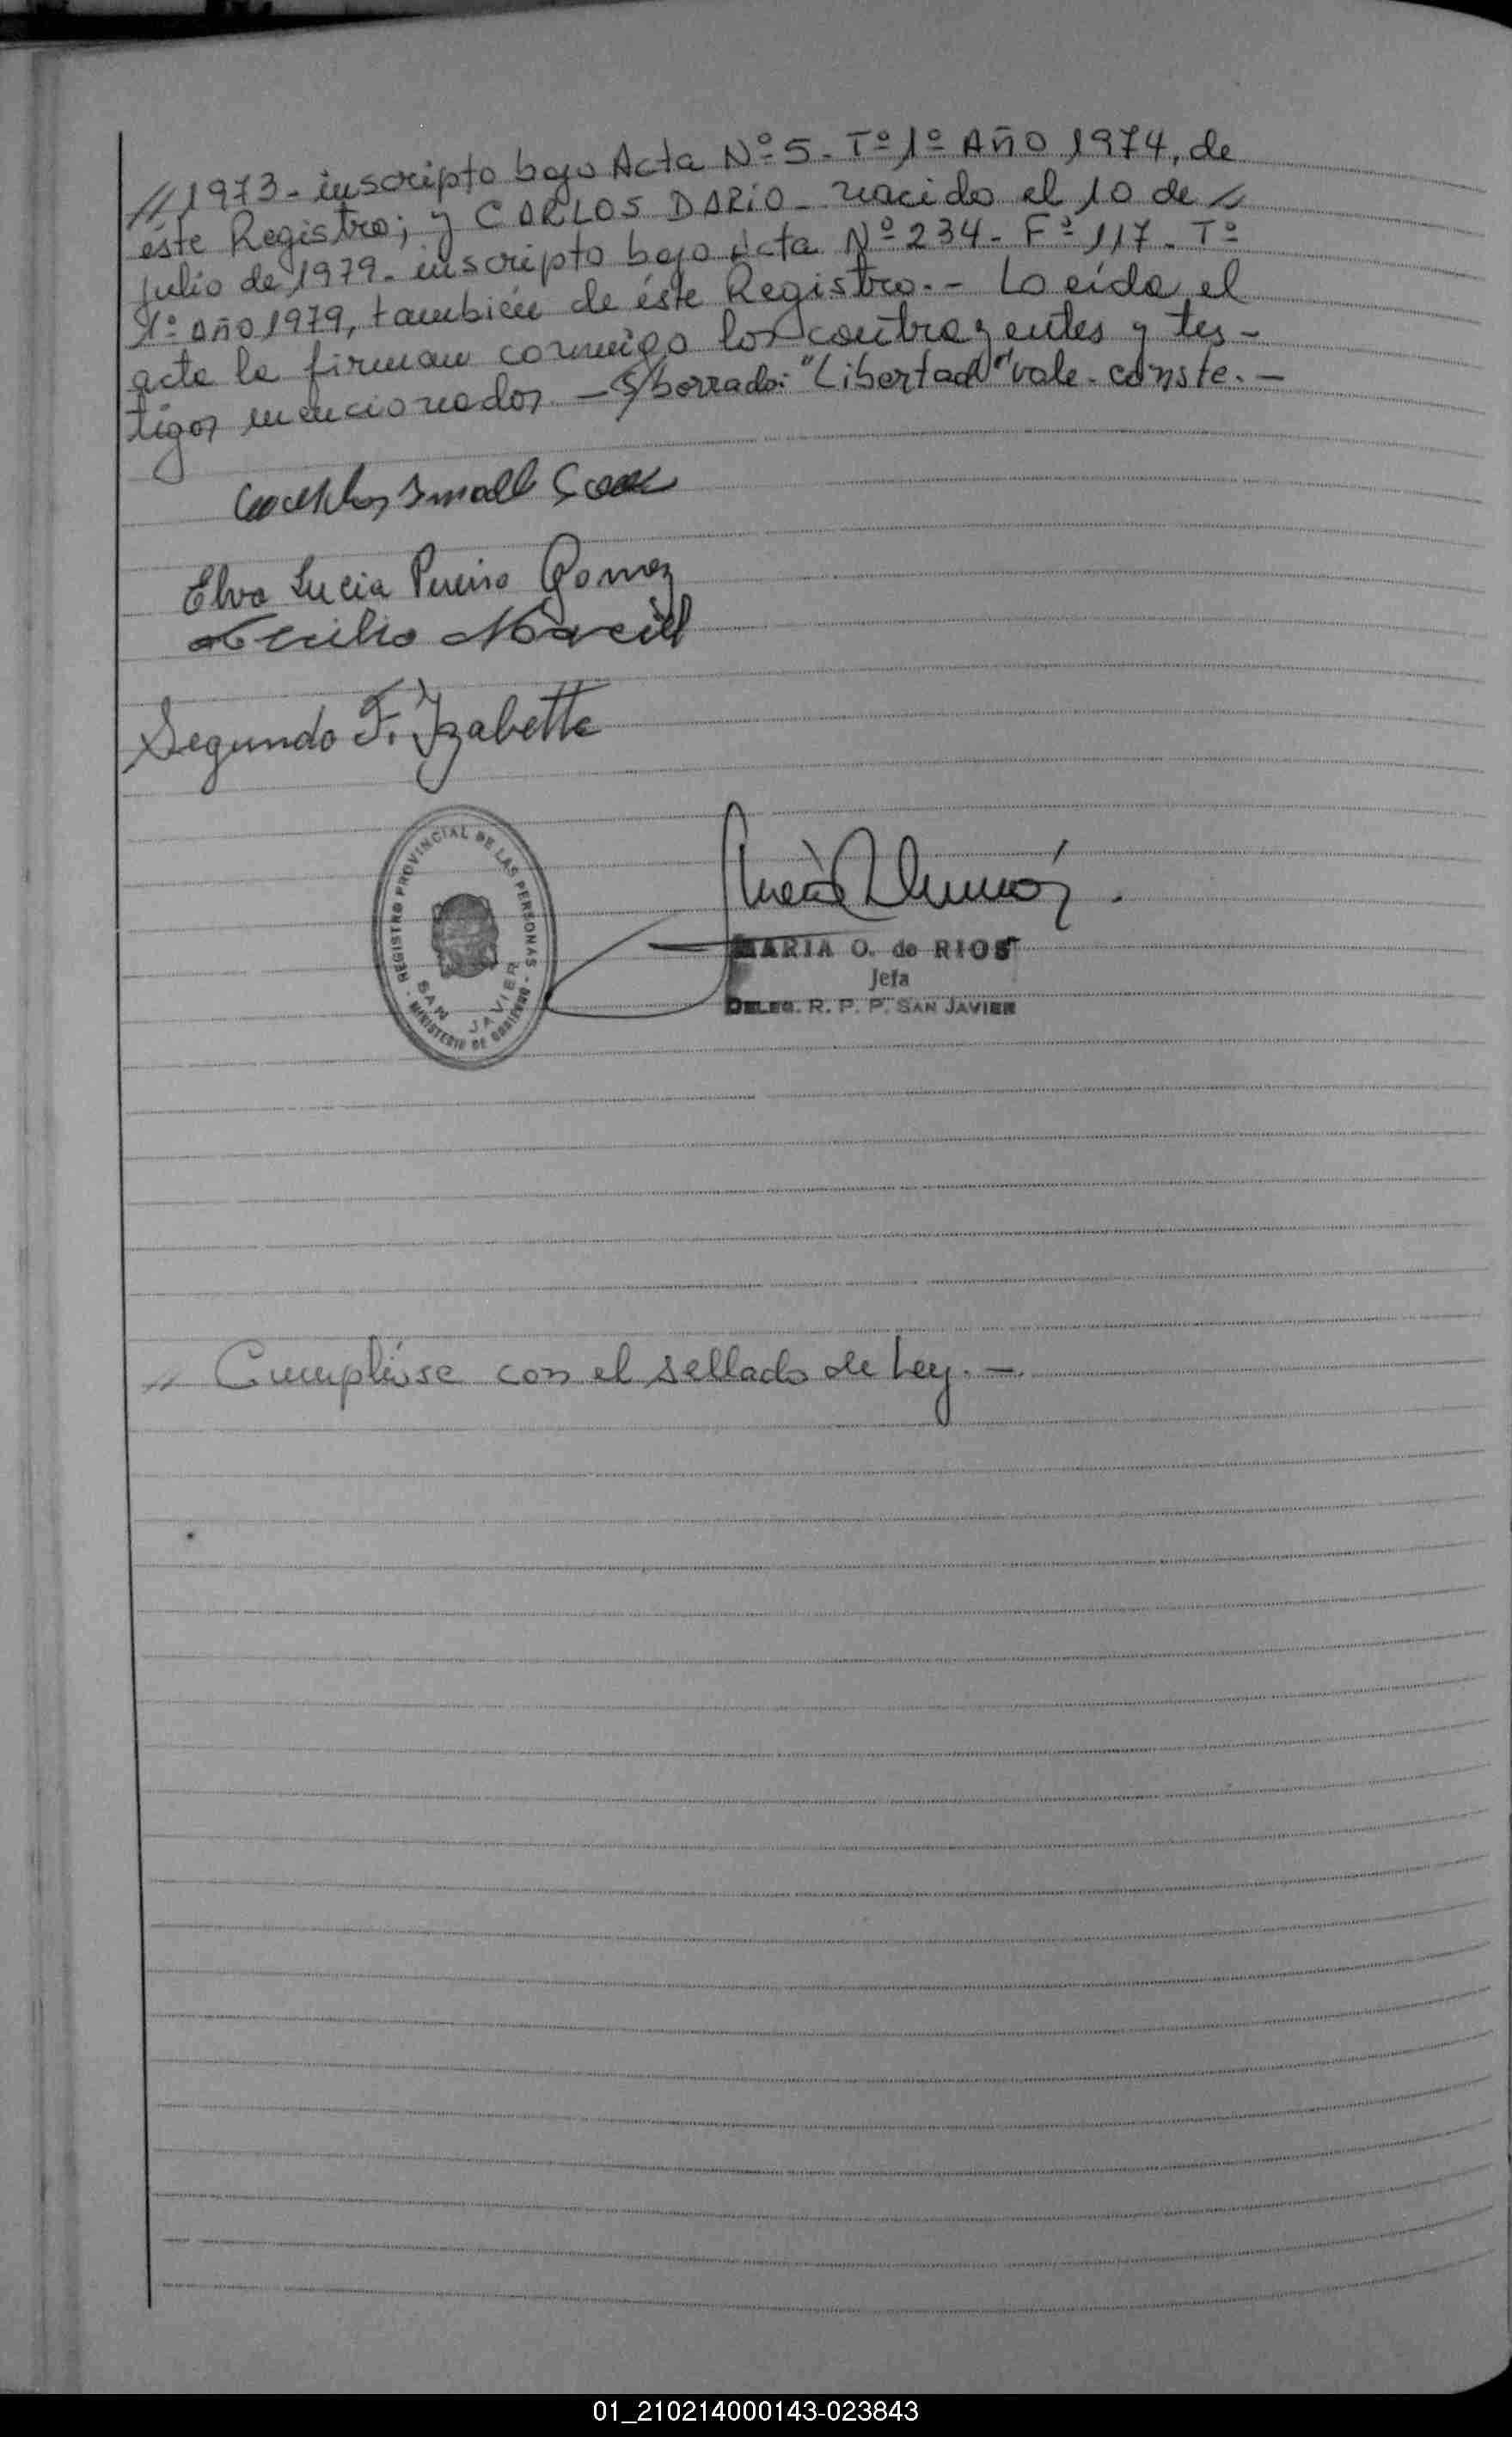 // 1973 - inscripto bajo Acta Nº 5 - Tº 1º Año 1974, de
éste Registro; y CARLOS DARIO - nacido el 10 de //
julio de 1979 - inscripto bajo Acta Nº 234 - Fº 117 - Tº
1º Año 1979, también de éste Registro.- Leída el
acta la firman conmigo los contrayentes y tes-
tigos mencionados. - S/borrado: "Libertad" vale. conste. -
Elva Lucia Gomez
Maciel
Segundo F.
REGISTRO PROVINCIAL DE LAS PERSONAS
SAN JAVIER
MINISTERIO DE GOBIERNO
MARIA O. de RIOS
Jefa
DELEG. R. P. P. SAN JAVIER
// Cumplióse con el sellado de Ley. -
01_210214000143-023843